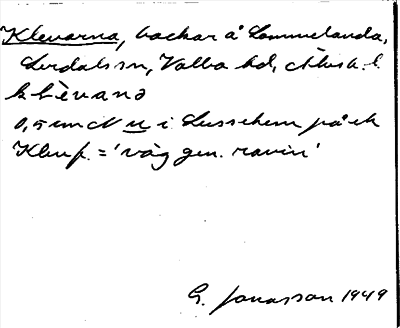 Klevarna, backar å Sammelanda,
Lerdals sn, Valbo hd, Älvsb. l.
klèvanə
0,5 cm N u i Lussehem på ek
Klev f. = 'väg gen. ravin'
G. Jonasson 1949